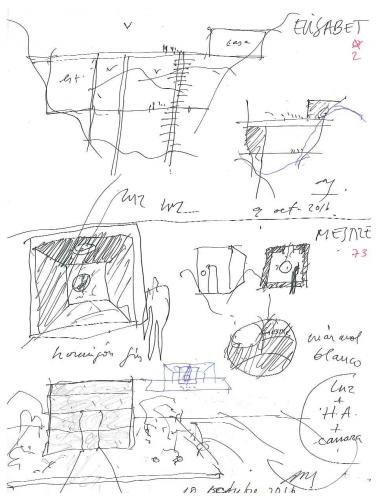 ELISABET
2
casa
est.
9 oct. 2016
LUZ LUZ
MESTRE
73
hormigón gris
mármol
blanco
LUZ
+
H.A.
+
10 octubre 2016